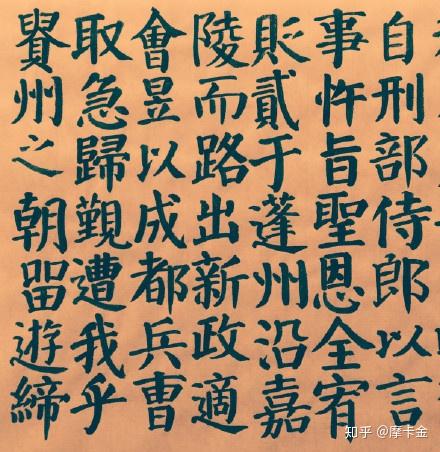 自刑部侍郎以言
事忤旨聖恩全宥
貶貳于蓬州沿嘉
陵而路出新政適
會昱以成都兵曹
取急歸覲遭我乎
貴州之朝留遊締
知乎 @摩卡金